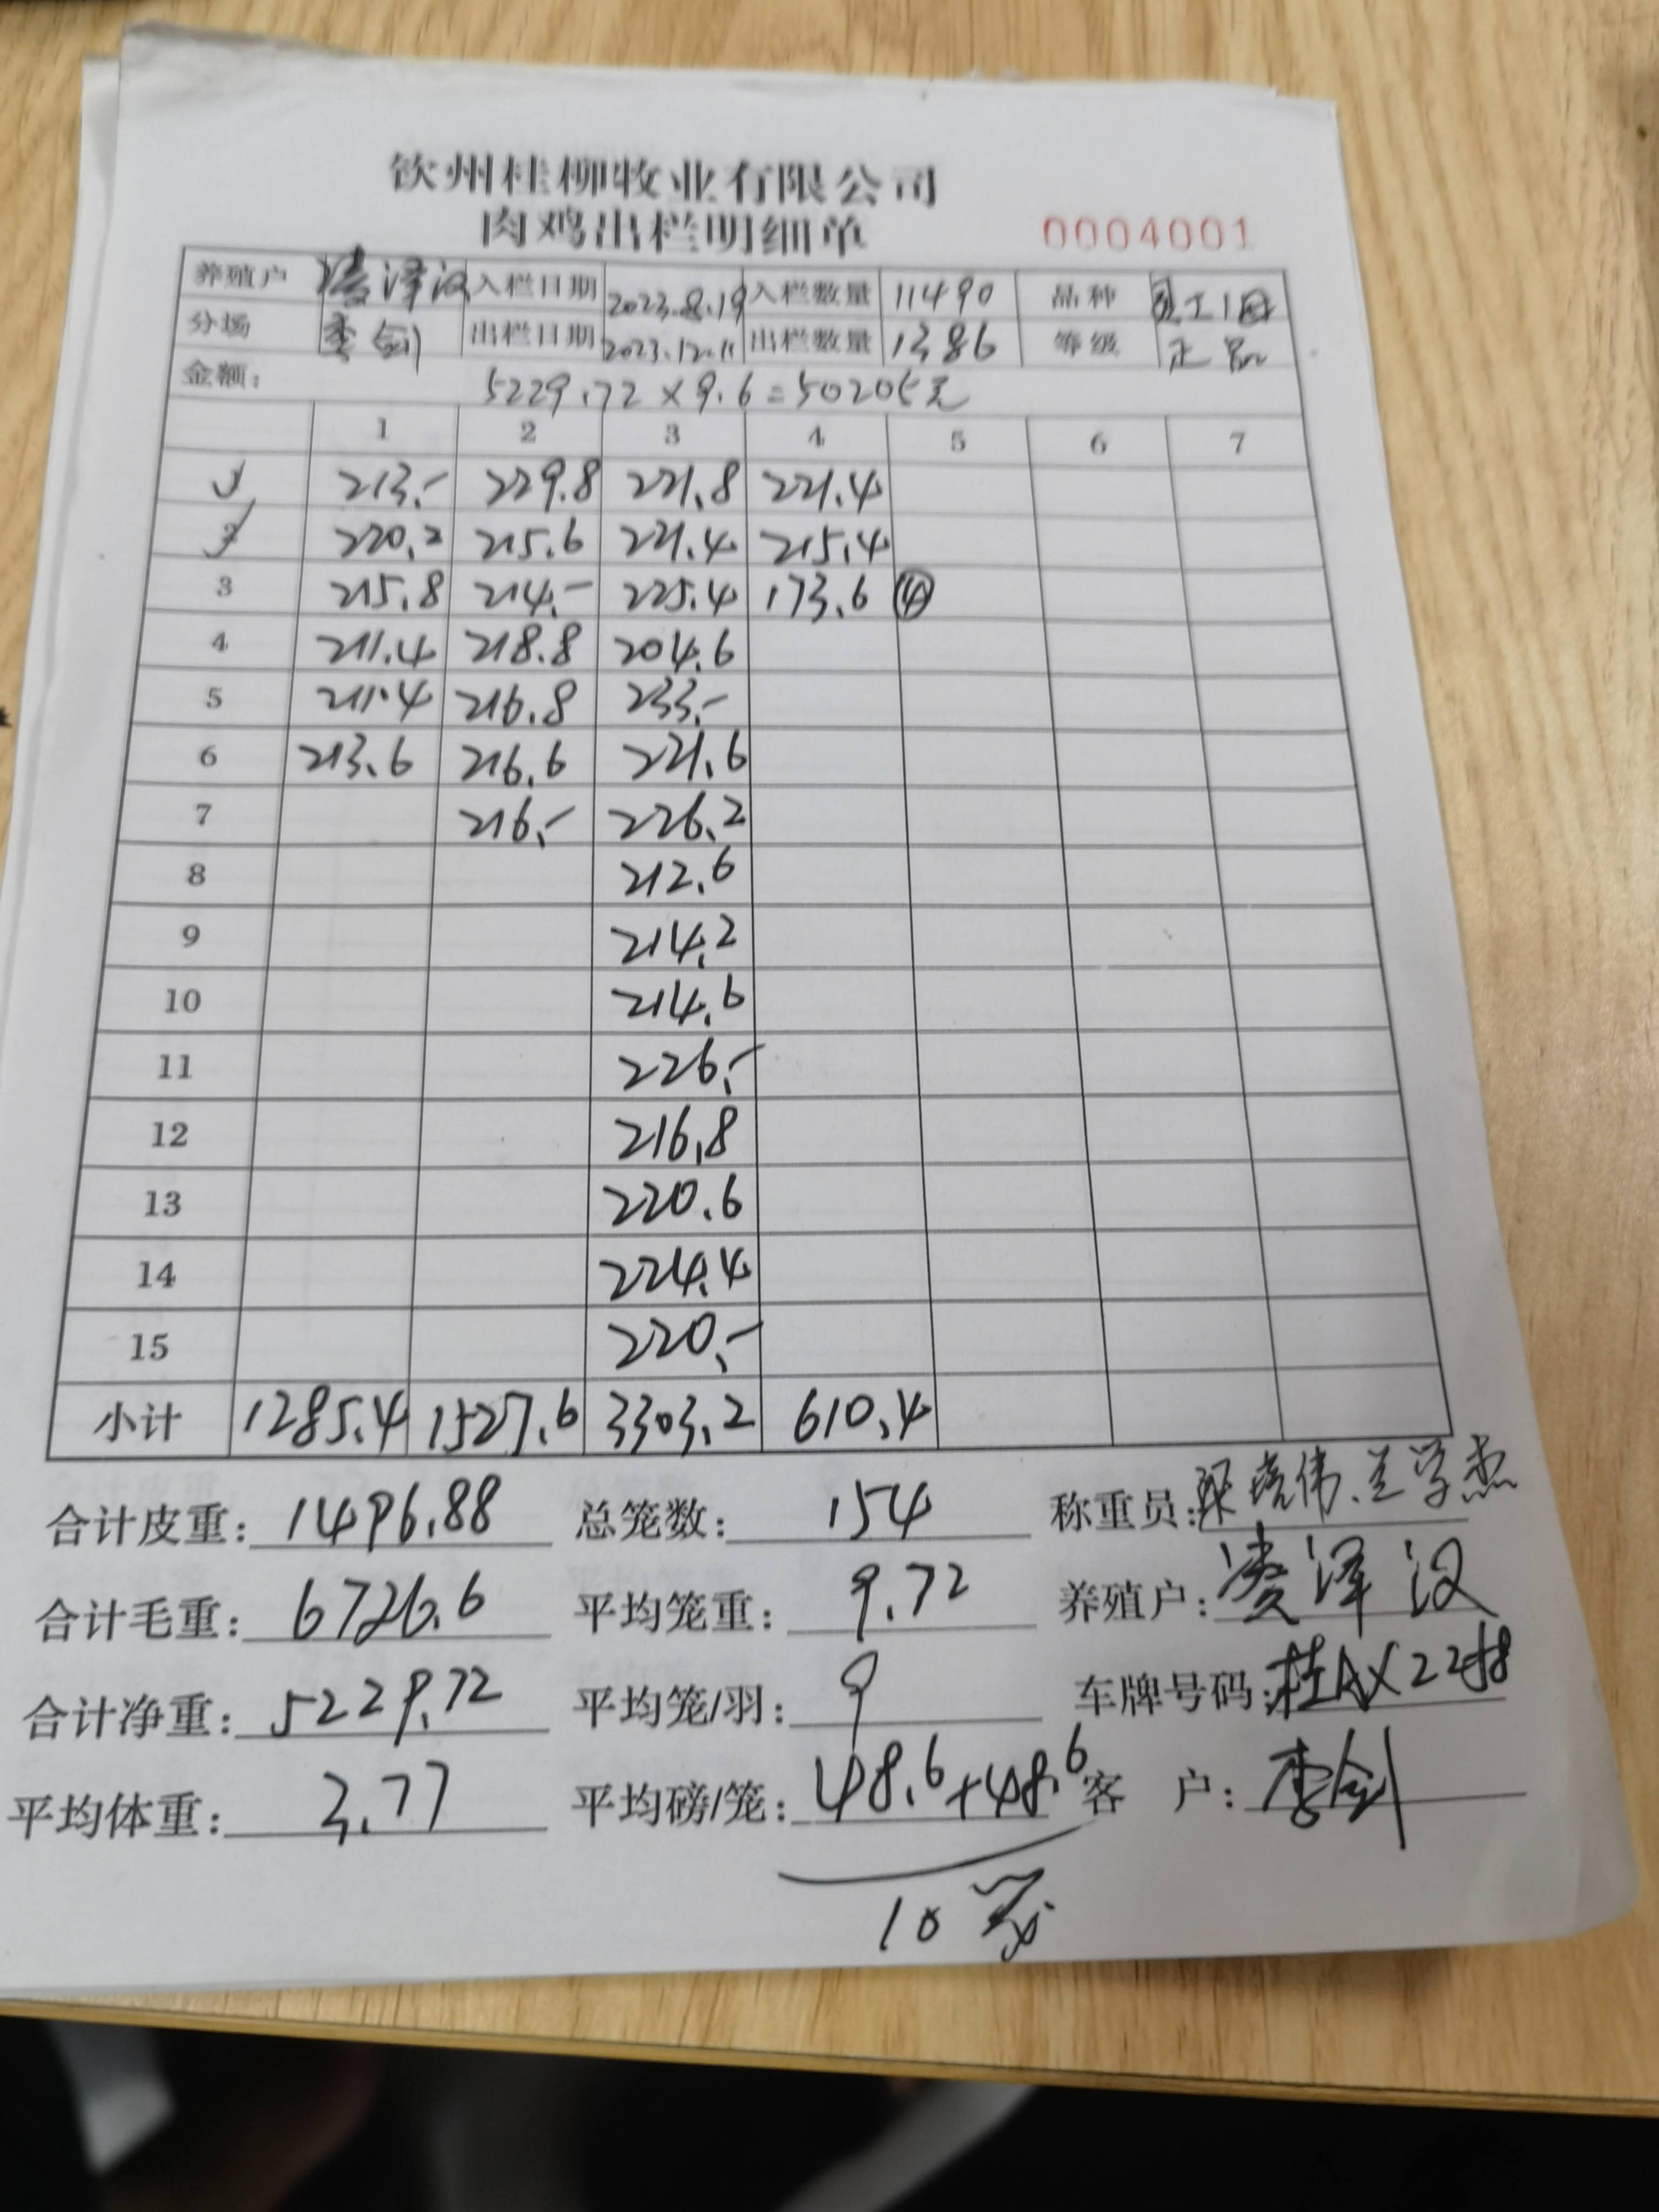 钦州桂柳牧业有限公司
肉鸡出栏明细单 0004001
养殖户 凌泽汉 入栏日期 2023.8.19 入栏数量 11490 品种
分场 李剑 出栏日期 2023.12.11 出栏数量 1386 等级 正品
金额: 5229.72×9.6=50205元
1 2 3 4 5 6 7
1 213.- 229.8 221.8 221.4
2 220.2 215.6 221.4 215.4
3 215.8 214.- 225.4 173.6 ④
4 211.4 218.8 204.6
5 211.4 216.8 233.-
6 213.6 216.6 221.6
7 216.- 226.2
8 212.6
9 214.2
10 214.6
11 226.-
12 216.8
13 220.6
14 224.4
15 220.-
小计 1285.4 1527.6 3303.2 610.4
合计皮重: 1496.88 总笼数: 154 称重员:
合计毛重: 6726.6 平均笼重: 9.72 养殖户: 凌泽汉
合计净重: 5229.72 平均笼/羽: 9 车牌号码:
平均体重: 3.77 平均磅/笼: 48.6+48.6 客 户: 李剑
10